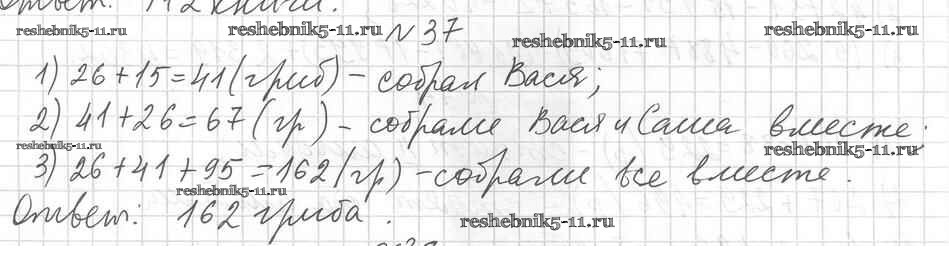 Ответ: 112 книги.
reshebnik5-11.ru reshebnik5-11.ru № 37 reshebnik5-11.ru reshebnik5-11.ru
1) 26+15=41(гриб) - собрал Вася;
2) 41+26=67(гр) - собрали Вася и Саша вместе.
reshebnik5-11.ru reshebnik5-11.ru
3) 26+41+95=162(гр) - собрали все вместе.
reshebnik5-11.ru
Ответ: 162 гриба.
reshebnik5-11.ru